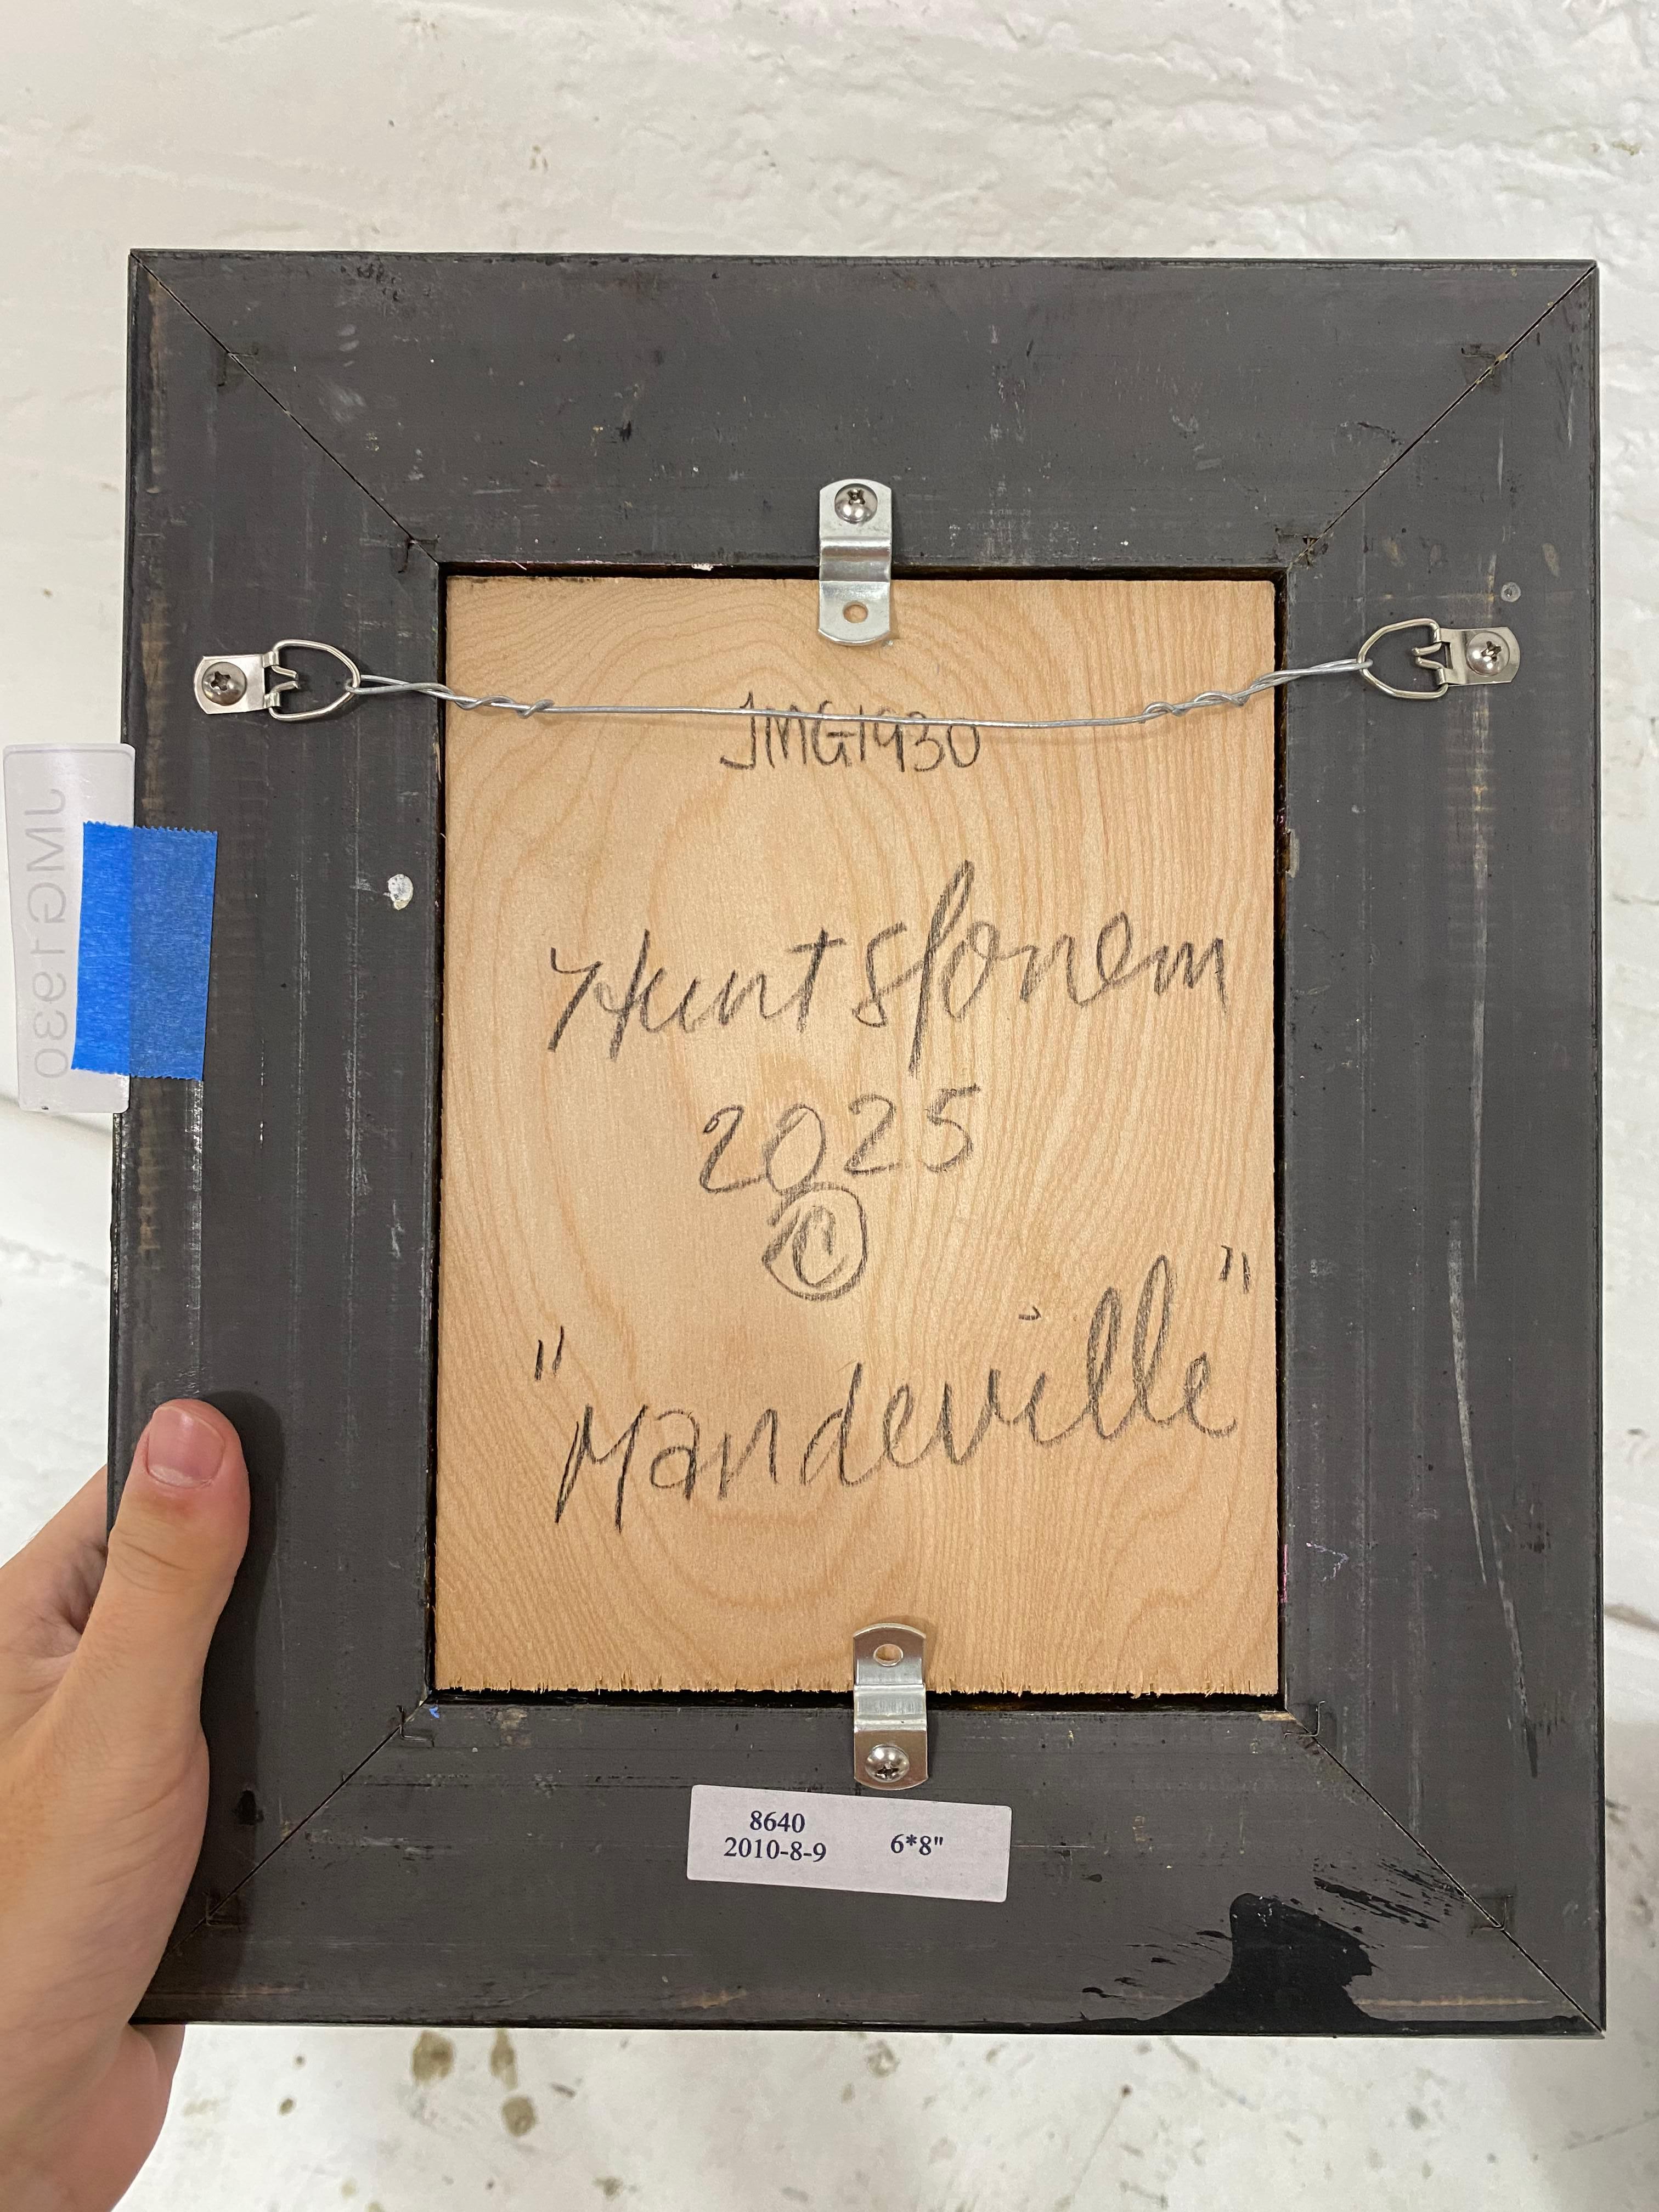 JMG1930
JMG1930
Hunt Slonem
2025
©
"Mandeville"
8640
2010-8-9 6*8"